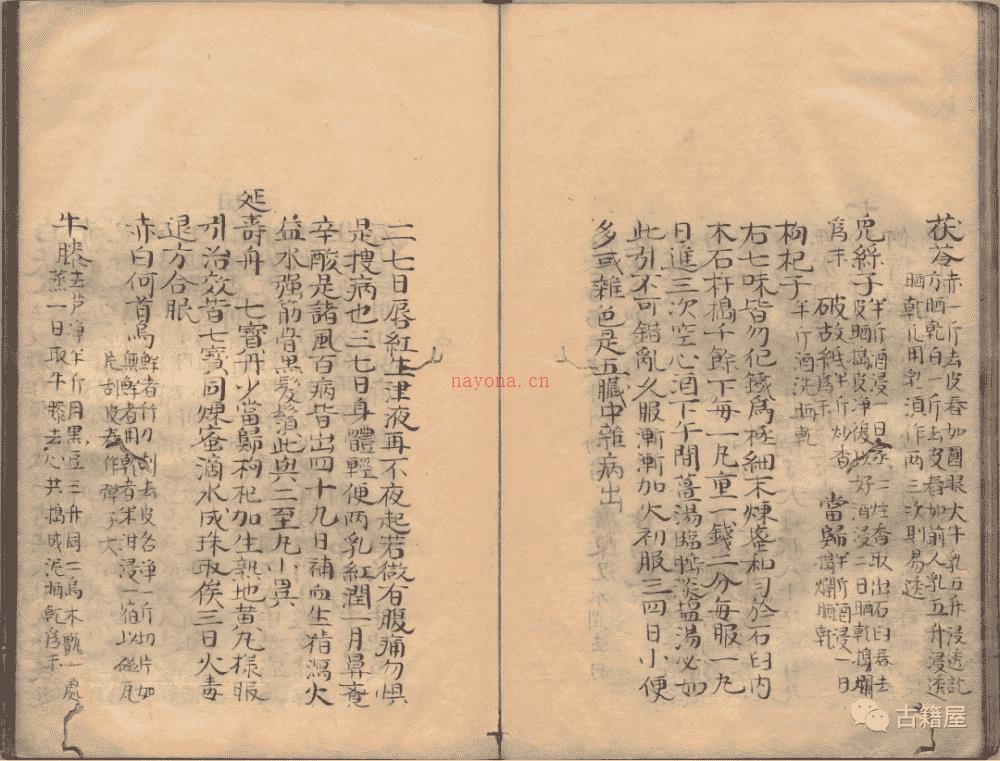 茯苓 赤一斤去皮舂如圓眼大牛乳五升浸透訖
方晒乾白一斤去皮舂如前人乳五升浸透
晒乾凡用乳須作兩三次則易透
兔絲子 半斤酒浸一日 二炷香取出石臼舂去
皮晒搗皮淨後以好酒浸二日晒乾搗爛
為末 破故紙半斤炒香為末 當歸半斤酒浸一日搗爛晒乾
枸杞子半斤酒洗晒乾
右七味皆勿犯鐵為極細末煉蜜和勻於石臼內
木石杵搗千餘下每一丸重一錢二分每服一丸
日進三次空心酒下午間薑湯臨臥淡塩湯必如
此引不可錯亂久服漸漸加火初服三四日小便
多或雜色是五臟中雜病出
二七日唇紅生津液再不夜起若微有腹痛勿惧
是搜病也三七日身體輕便两乳紅潤一月鼻
辛酸是諸風百病皆出四十九日補血生精瀉火
益水強筋骨黑髮鬚此與二至丸小異
延壽丹 七寶丹少當歸枸杞加生熟地黄丸樣服
引治效皆七寶同煉蜜滴水成珠取俟三日火毒
退方合服
赤白何首烏 鮮者竹刀刮去皮各淨一斤切片如
無鮮者用乾者米泔浸一宿以磁瓦
片刮皮舂作彈子大
牛膝 去芦淨半斤用黑豆三升同二烏木甑一處
蒸一日取牛膝去心共搗成泥晒乾為末
nayona.cn
古籍屋